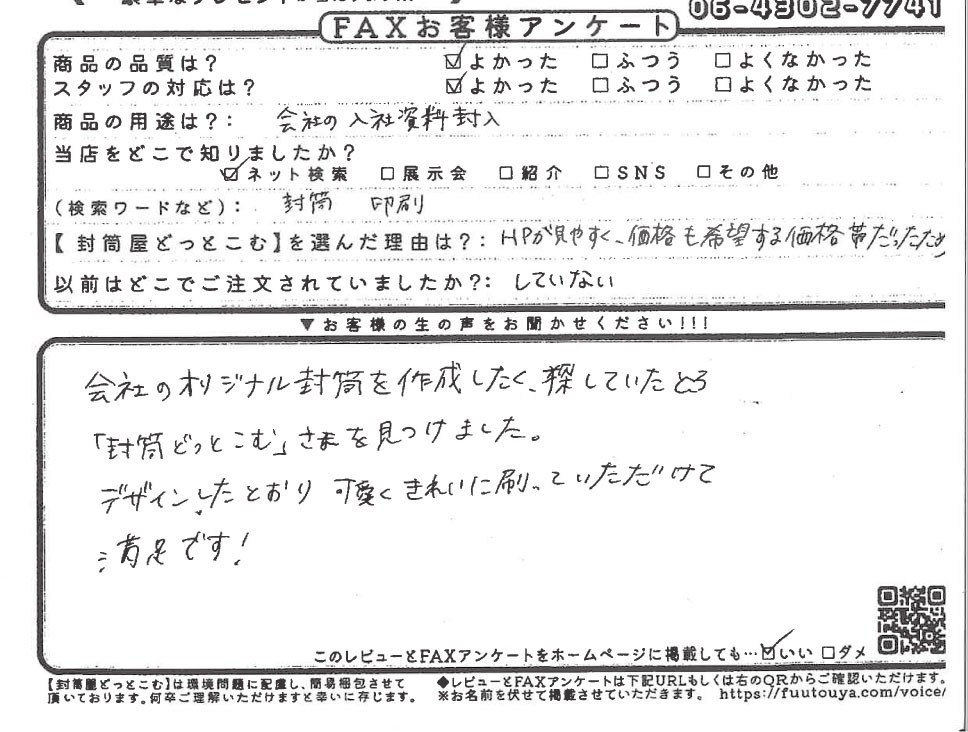 06-4302-7741
FAXお客様アンケート
商品の品質は? ☑よかった □ふつう □よくなかった
スタッフの対応は? ☑よかった □ふつう □よくなかった
商品の用途は?: 会社の入社資料封入
当店をどこで知りましたか?
☑ネット検索 □展示会 □紹介 □SNS □その他
(検索ワードなど): 封筒 印刷
【封筒屋どっとこむ】を選んだ理由は?: HPが見やすく、価格も希望する価格帯だったため
以前はどこでご注文されていましたか?: していない
▼お客様の生の声をお聞かせください!!!
会社のオリジナル封筒を作成したく、探していたところ
「封筒どっとこむ」さまを見つけました。
デザインしたとおり可愛くきれいに刷っていただけて
満足です!
このレビューとFAXアンケートをホームページに掲載しても…☑いい □ダメ
【封筒屋どっとこむ】は環境問題に配慮し、簡易梱包させて
頂いております。何卒ご理解いただけますと幸いに存じます。
◆レビューとFAXアンケートは下記URLもしくは右のQRからご確認いただけます。
※お名前を伏せて掲載させていただきます。 https://fuutouya.com/voice/